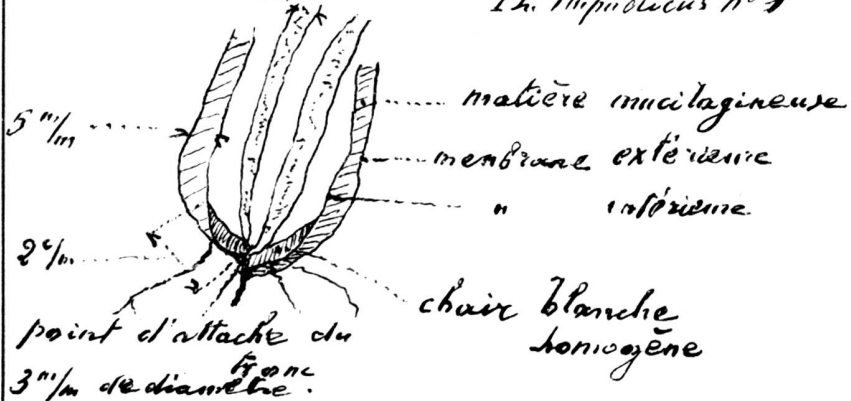 Ph. Impudicus n° 1
matière mucilagineuse
5 m/m
membrane extérieure
" intérieure
2 c/m
chair blanche
homogène
point d'attache du
tronc
3 m/m de diamètre.